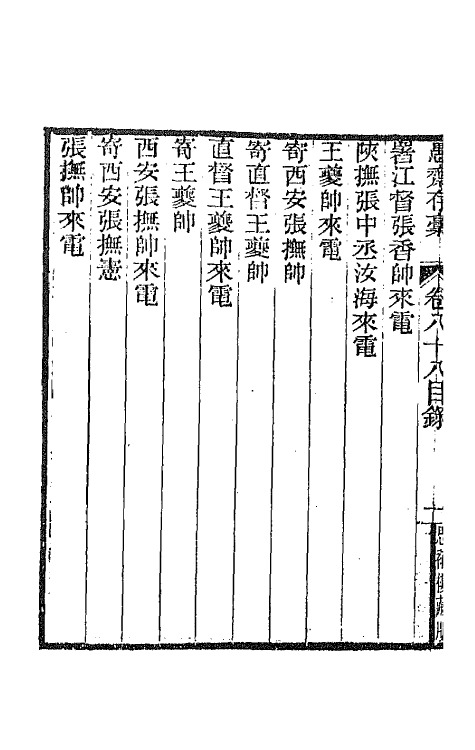 愚齋存稾 卷八十八目錄 十一
署江督張香帥來電
陝撫張中丞汝海來電
王夔帥來電
寄西安張撫帥
寄直督王夔帥
直督王夔帥來電
寄王夔帥
西安張撫帥來電
寄西安張撫憲
張撫帥來電